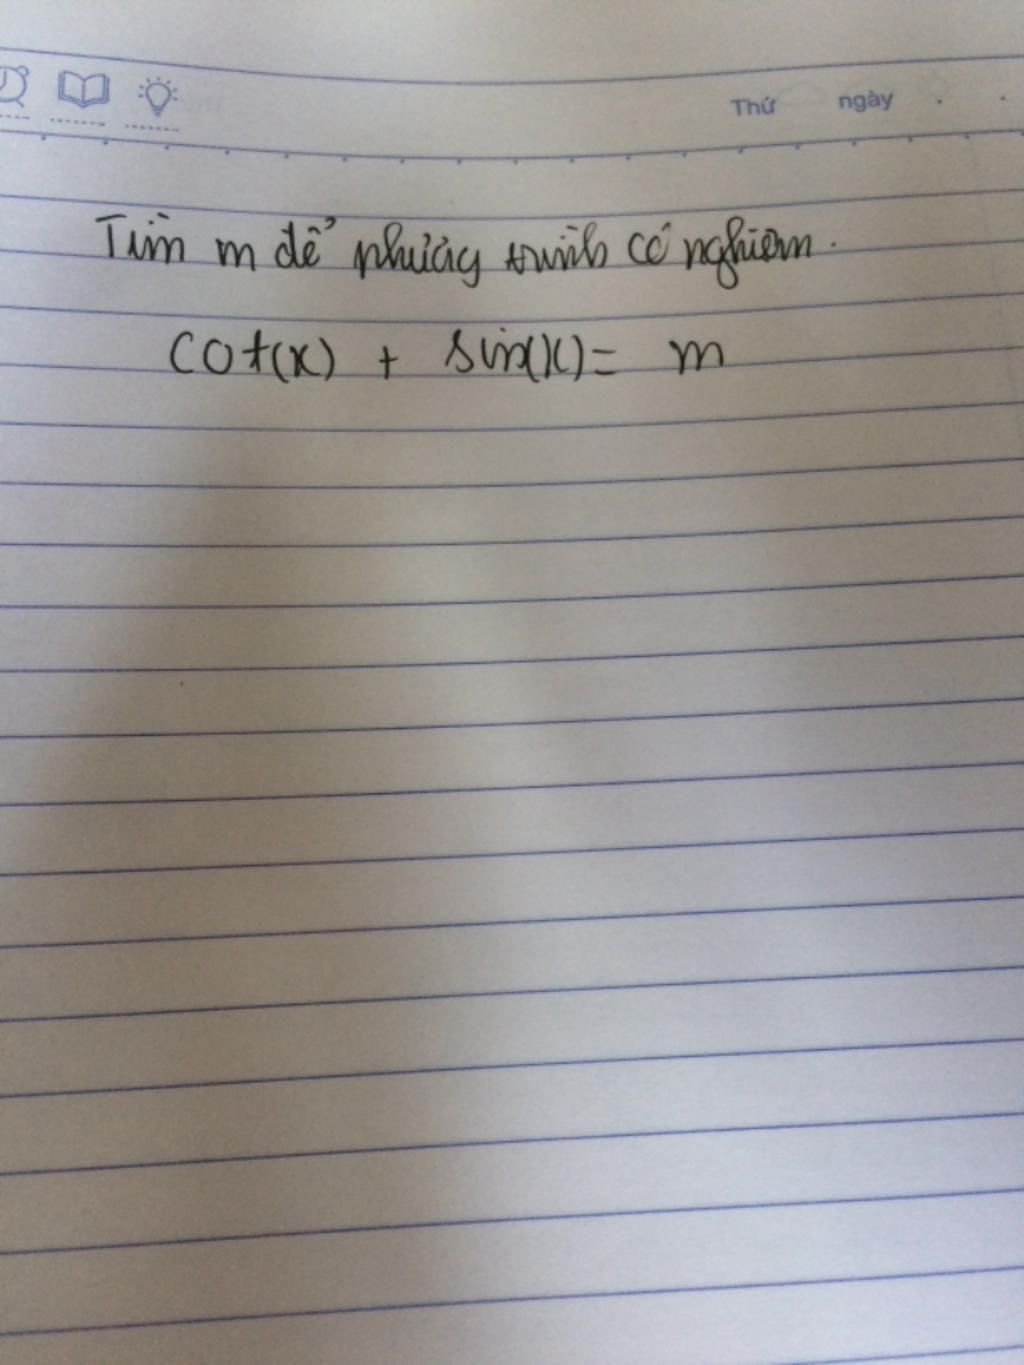 Thứ ngày . .
Tìm m để phương trình có nghiệm.
cot(x) + sin(x) = m